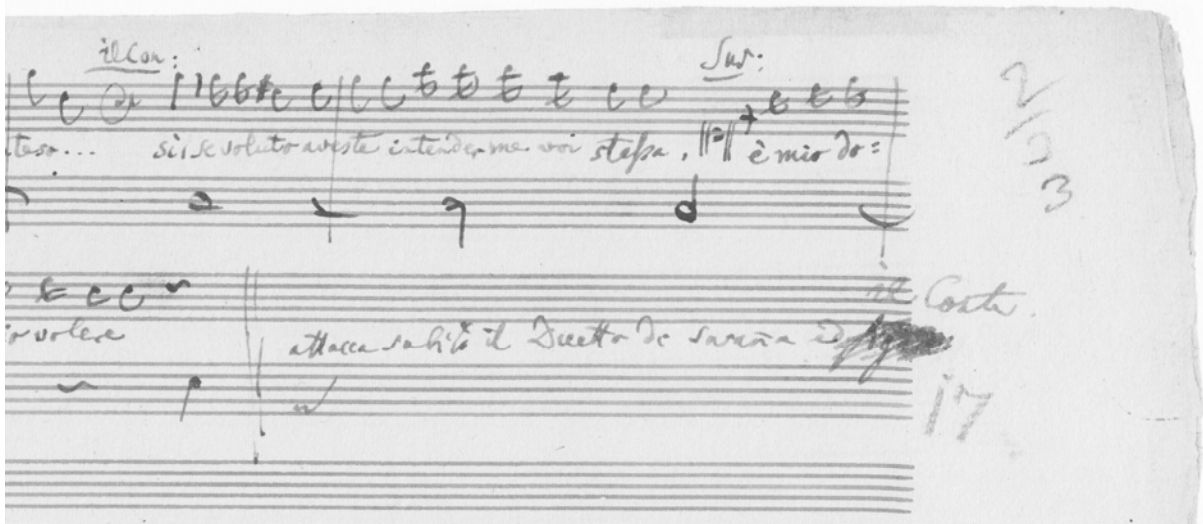 il Con: Sus:
teso... si, se voluto aveste intenderme voi stessa. è mio do=
2/103
il Conte.
volere attacca subito il Duetto di Susanna ed
17